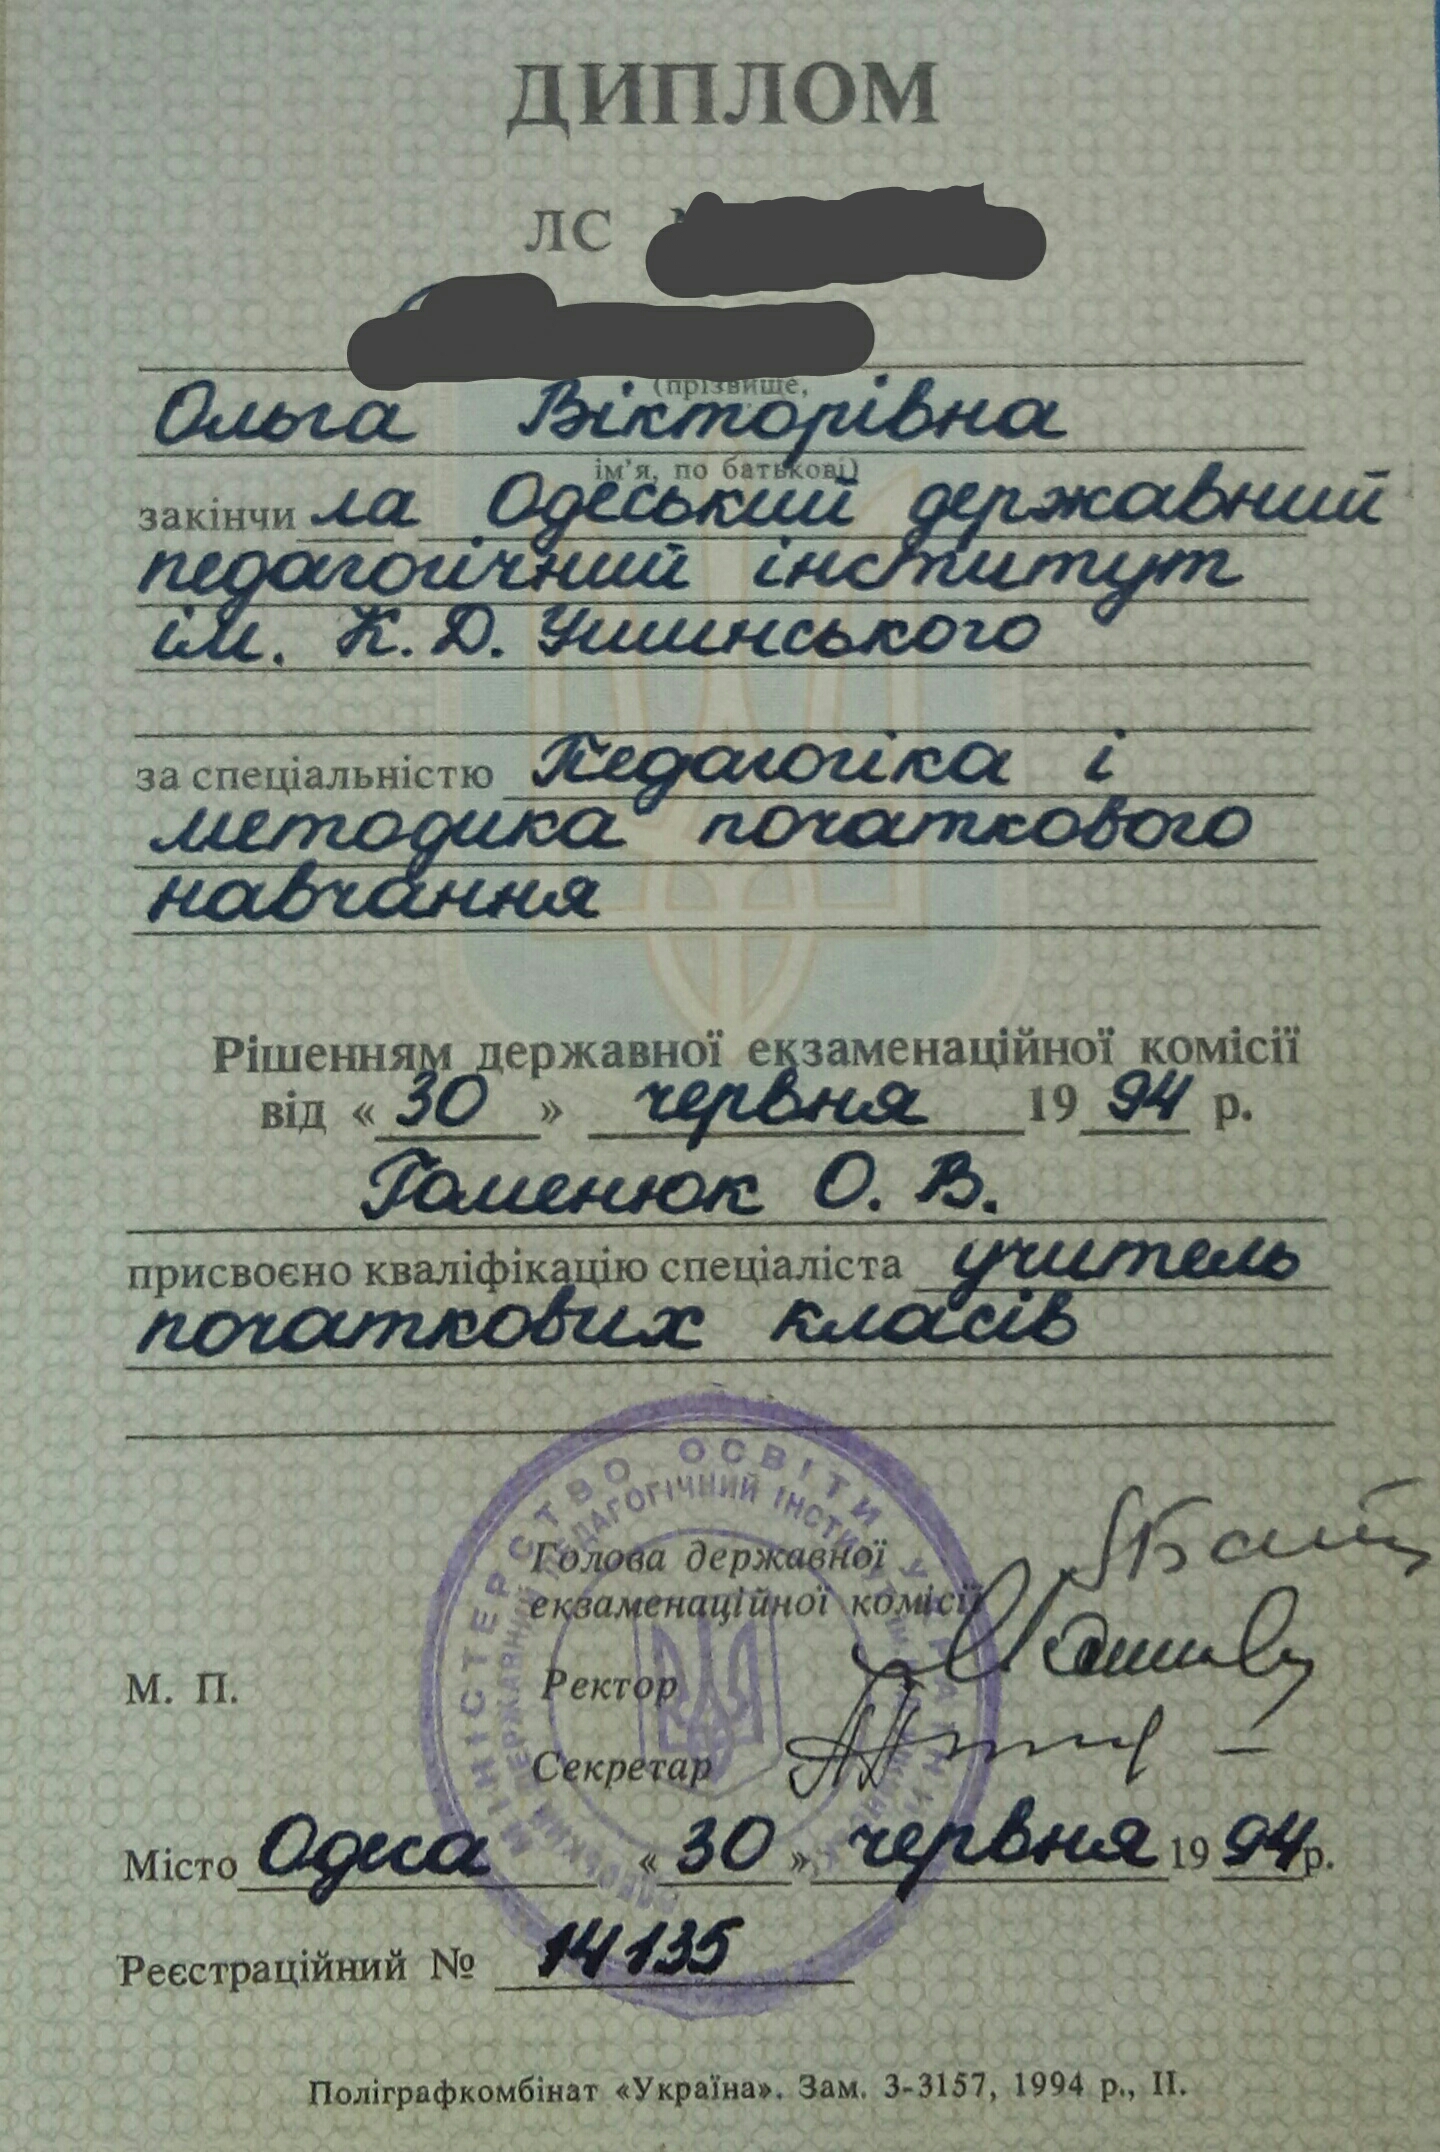 ДИПЛОМ
ЛС
(прізвище,
Ольга Вікторівна
ім'я, по батькові)
закінчила Одеський державний
педагогічний інститут
ім. К. Д. Ушинського
за спеціальністю Педагогіка і
методика початкового
навчання
Рішенням державної екзаменаційної комісії
від «30» червня 1994 р.
Гоменюк О. В.
присвоєно кваліфікацію спеціаліста учитель
початкових класів
МІНІСТЕРСТВО ОСВІТИ УКРАЇНИ
ДЕРЖАВНИЙ ПЕДАГОГІЧНИЙ ІНСТИТУТ
Голова державної
екзаменаційної комісії
М. П.
Ректор
Секретар
Місто Одеса «30» червня 1994 р.
Реєстраційний № 14135
Поліграфкомбінат «Україна». Зам. 3-3157, 1994 р., II.